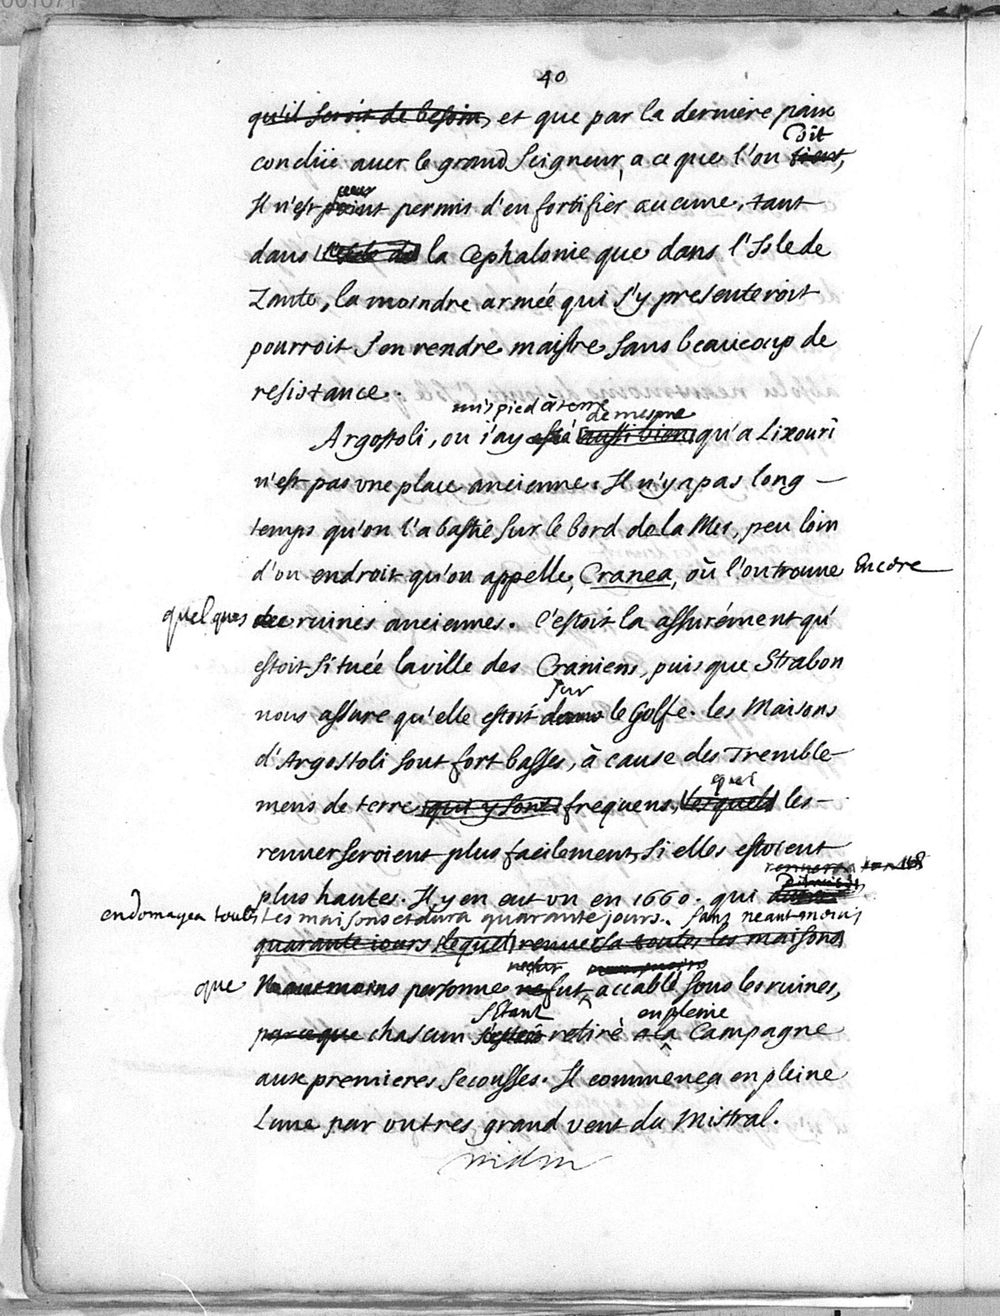 40
qu'il seroit de besoin, et que par la derniere paix
Dit
conclüe avec le grand Seigneur, a ce que l'on tient,
Il n'est point permis d'en fortifier aucune, tant
dans l'Isle de la Cephalonie que dans l'Isle de
Zante, la moindre armée qui s'y presenteroit
pourroit s'en rendre maistre sans beaucoup de
resistance.
mis pied à terre de mesme
Argostoli, ou j'ay esté aussi bien qu'a Lixouri
n'est pas vne place ancienne. Il n'y a pas long-
temps qu'on l'a bastie sur le bord de la Mer, peu loin
d'vn endroit qu'on appelle, Cranea, où l'on trouue Encore
quelques des ruines anciennes. C'estoit la assurément qu'
estoit située la ville des Craniens, puis que Strabon
sur
nous assure qu'elle estoit dans le Golfe. les Maisons
d'Argostoli sont fort basses, à cause des Tremble-
quoi
mens de terre qui y sont frequens, lesquels les-
renuerseroient plus facilement, si elles estoient
plus hautes. Il y en eut vn en 1660. qui dura
endomagea toutes les maisons et dura quarante jours. sans neantmoins
quarante iours lequel renuersa toutes les maisons
neantmoins
que Neantmoins personne ne fut accablé sous les ruines,
s'étant en pleine
parce que chascun s'estoit retiré a la Campagne
aux premieres secousses. Il commença en pleine
Lune par vn tres grand vent du Mistral.